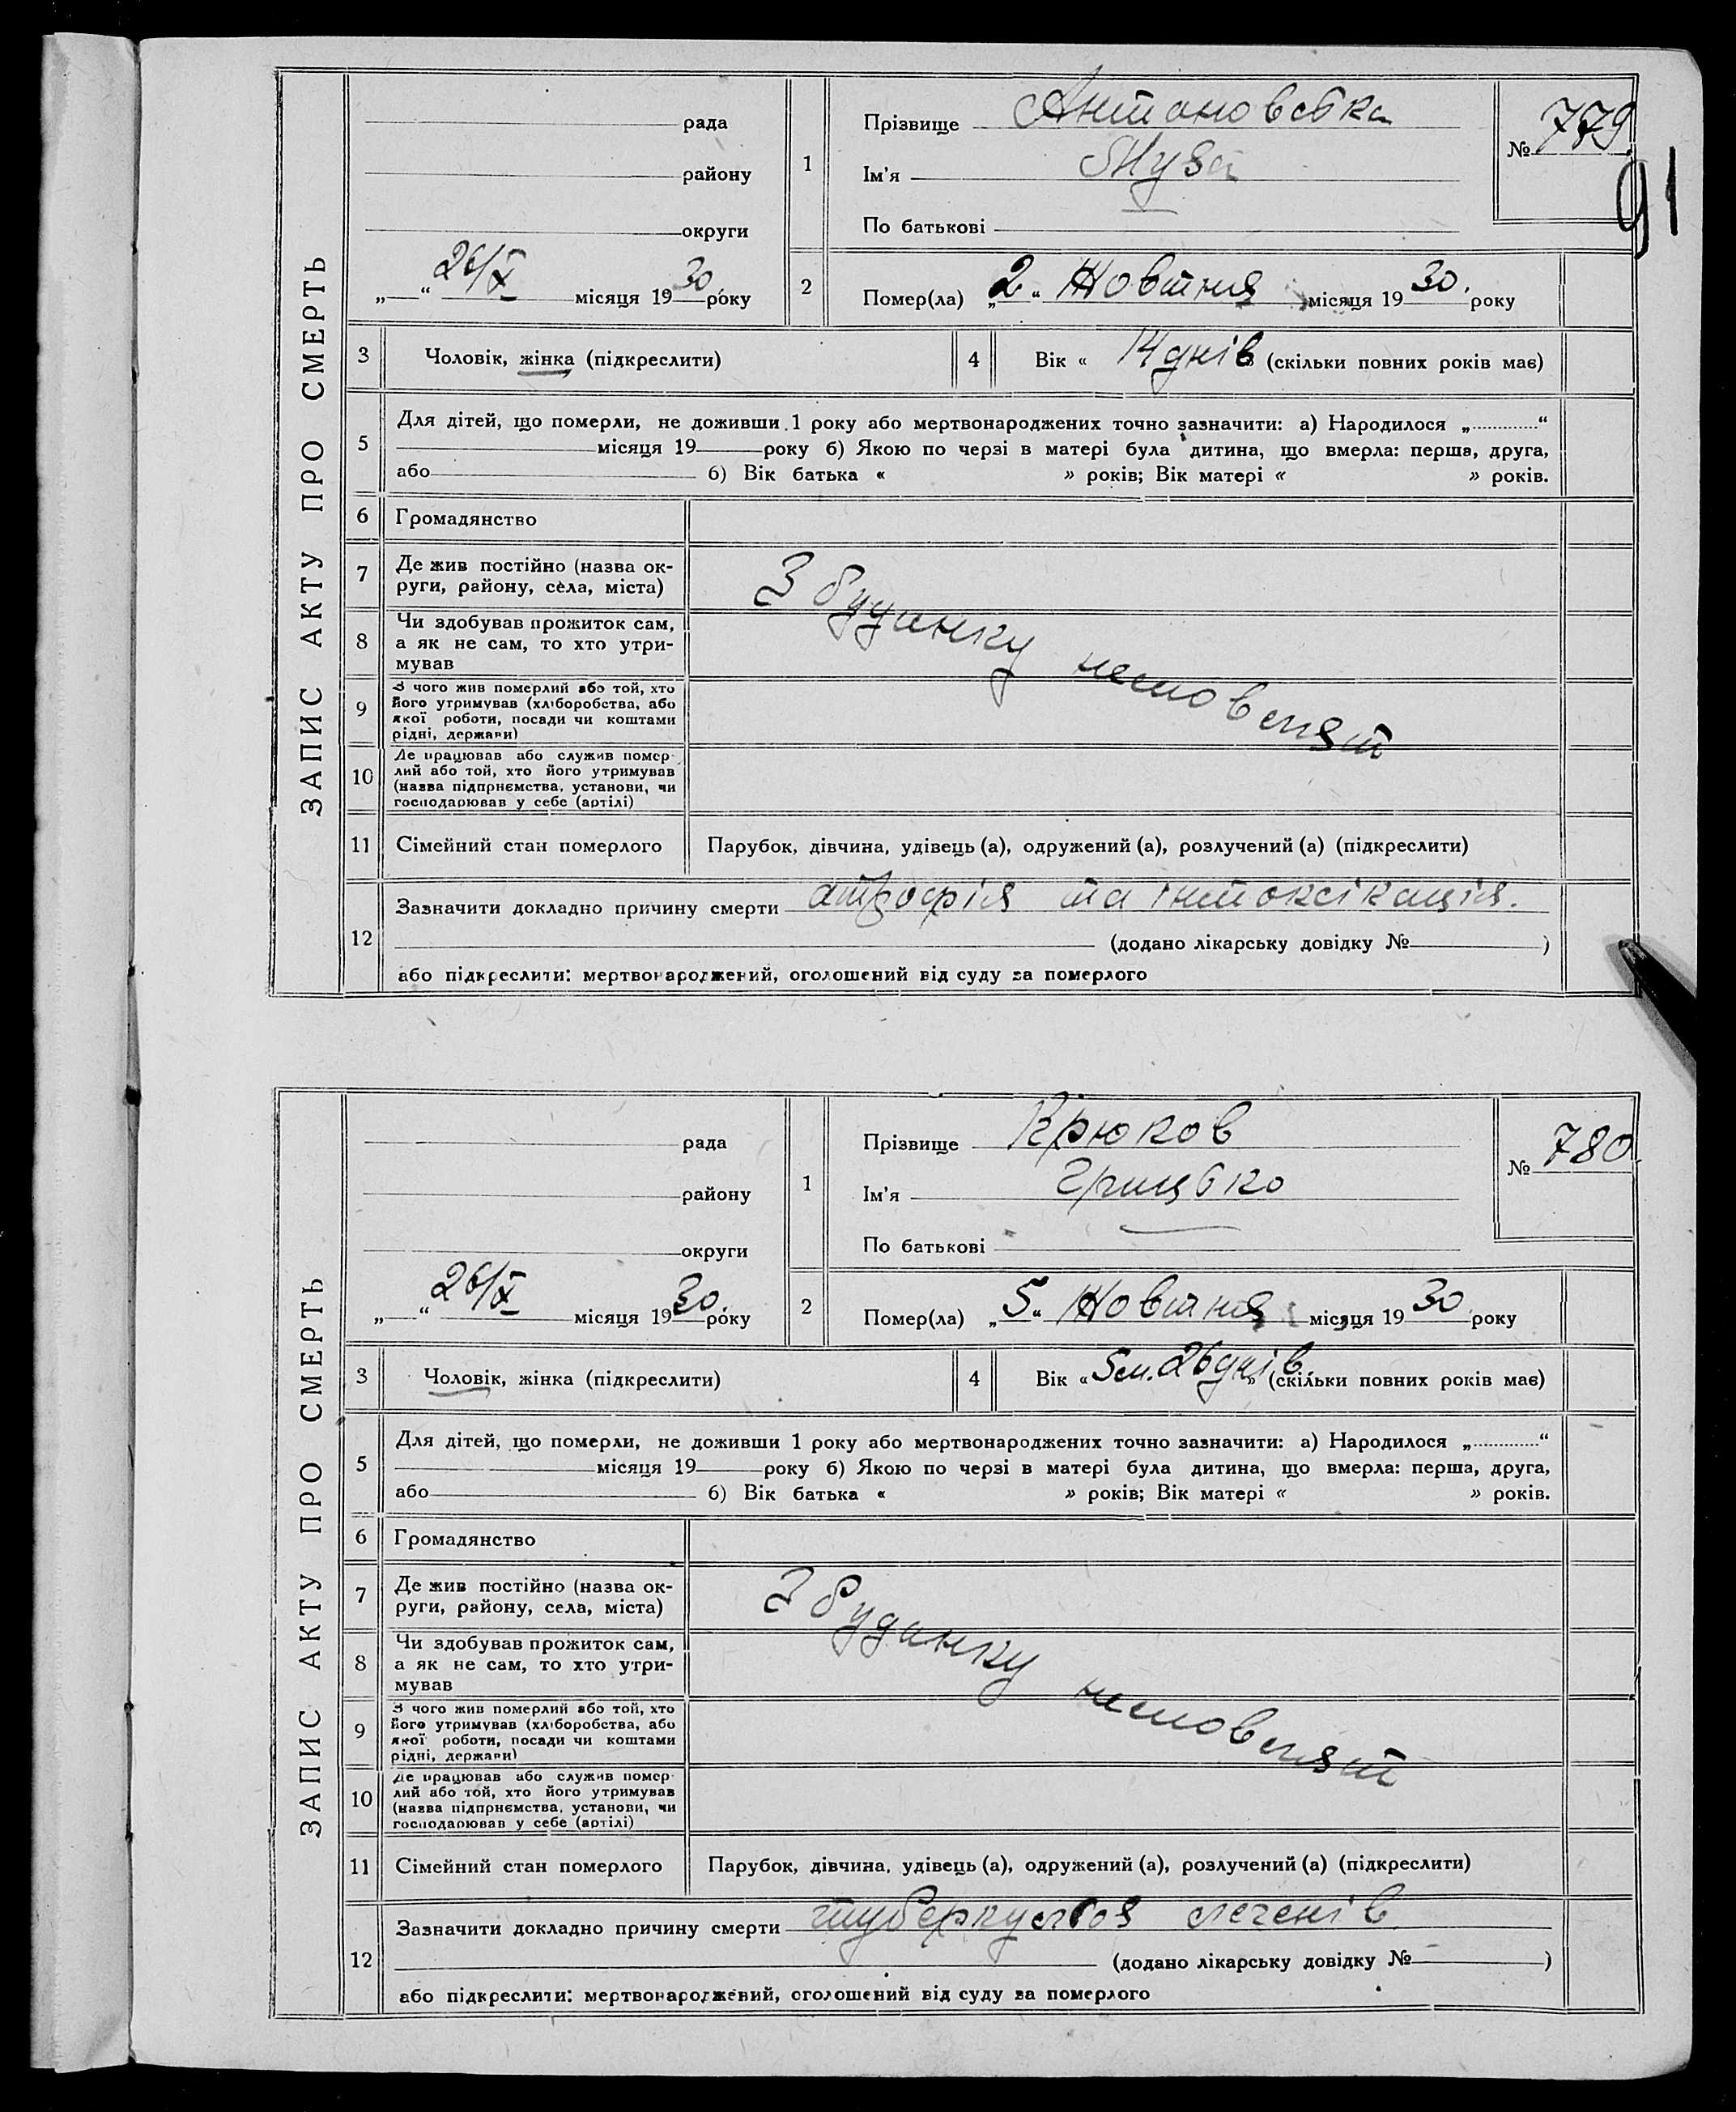 91
ЗАПИС АКТУ ПРО СМЕРТЬ
рада
району
округи
26/X місяця 1930 року
1
Прізвище Антоновська
Ім'я Муза
По батькові —
№ 779
2
Помер(ла) „2“ Жовтня місяця 1930. року
3
Чоловік, жінка (підкреслити)
4
Вік « 14 днів » (скільки повних років має)
5
Для дітей, що померли, не доживши 1 року або мертвонароджених точно зазначити: а) Народилося „............“
місяця 19 року б) Якою по черзі в матері була дитина, що вмерла: перша, друга,
або 6) Вік батька « » років; Вік матері « » років.
6
Громадянство
7
Де жив постійно (назва ок-
руги, району, села, міста)
8
Чи здобував прожиток сам,
а як не сам, то хто утри-
мував
9
З чого жив померлий або той, хто
його утримував (хліборобства, або
якої роботи, посади чи коштами
рідні, держави)
10
Де працював або служив помер-
лий або той, хто його утримував
(назва підприємства, установи, чи
господарював у себе (артілі)
З будинку немовлят
11
Сімейний стан померлого
Парубок, дівчина, удівець (а), одружений (а), розлучений (а) (підкреслити)
12
Зазначити докладно причину смерти атрофія та інтоксікація.
(додано лікарську довідку № )
або підкреслити: мертвонароджений, оголошений від суду за померлого
ЗАПИС АКТУ ПРО СМЕРТЬ
рада
району
округи
26/X місяця 1930. року
1
Прізвище Крюков
Ім'я Грицько
По батькові —
№ 780.
2
Помер(ла) „5“ Жовтня місяця 1930. року
3
Чоловік, жінка (підкреслити)
4
Вік « 5 м. 26 днів » (скільки повних років має)
5
Для дітей, що померли, не доживши 1 року або мертвонароджених точно зазначити: а) Народилося „............“
місяця 19 року б) Якою по черзі в матері була дитина, що вмерла: перша, друга,
або 6) Вік батька « » років; Вік матері « » років.
6
Громадянство
7
Де жив постійно (назва ок-
руги, району, села, міста)
8
Чи здобував прожиток сам,
а як не сам, то хто утри-
мував
9
З чого жив померлий або той, хто
його утримував (хліборобства, або
якої роботи, посади чи коштами
рідні, держави)
10
Де працював або служив помер-
лий або той, хто його утримував
(назва підприємства, установи, чи
господарював у себе (артілі)
З будинку немовлят
11
Сімейний стан померлого
Парубок, дівчина, удівець (а), одружений (а), розлучений (а) (підкреслити)
12
Зазначити докладно причину смерти туберкульоз легенів.
(додано лікарську довідку № )
або підкреслити: мертвонароджений, оголошений від суду за померлого